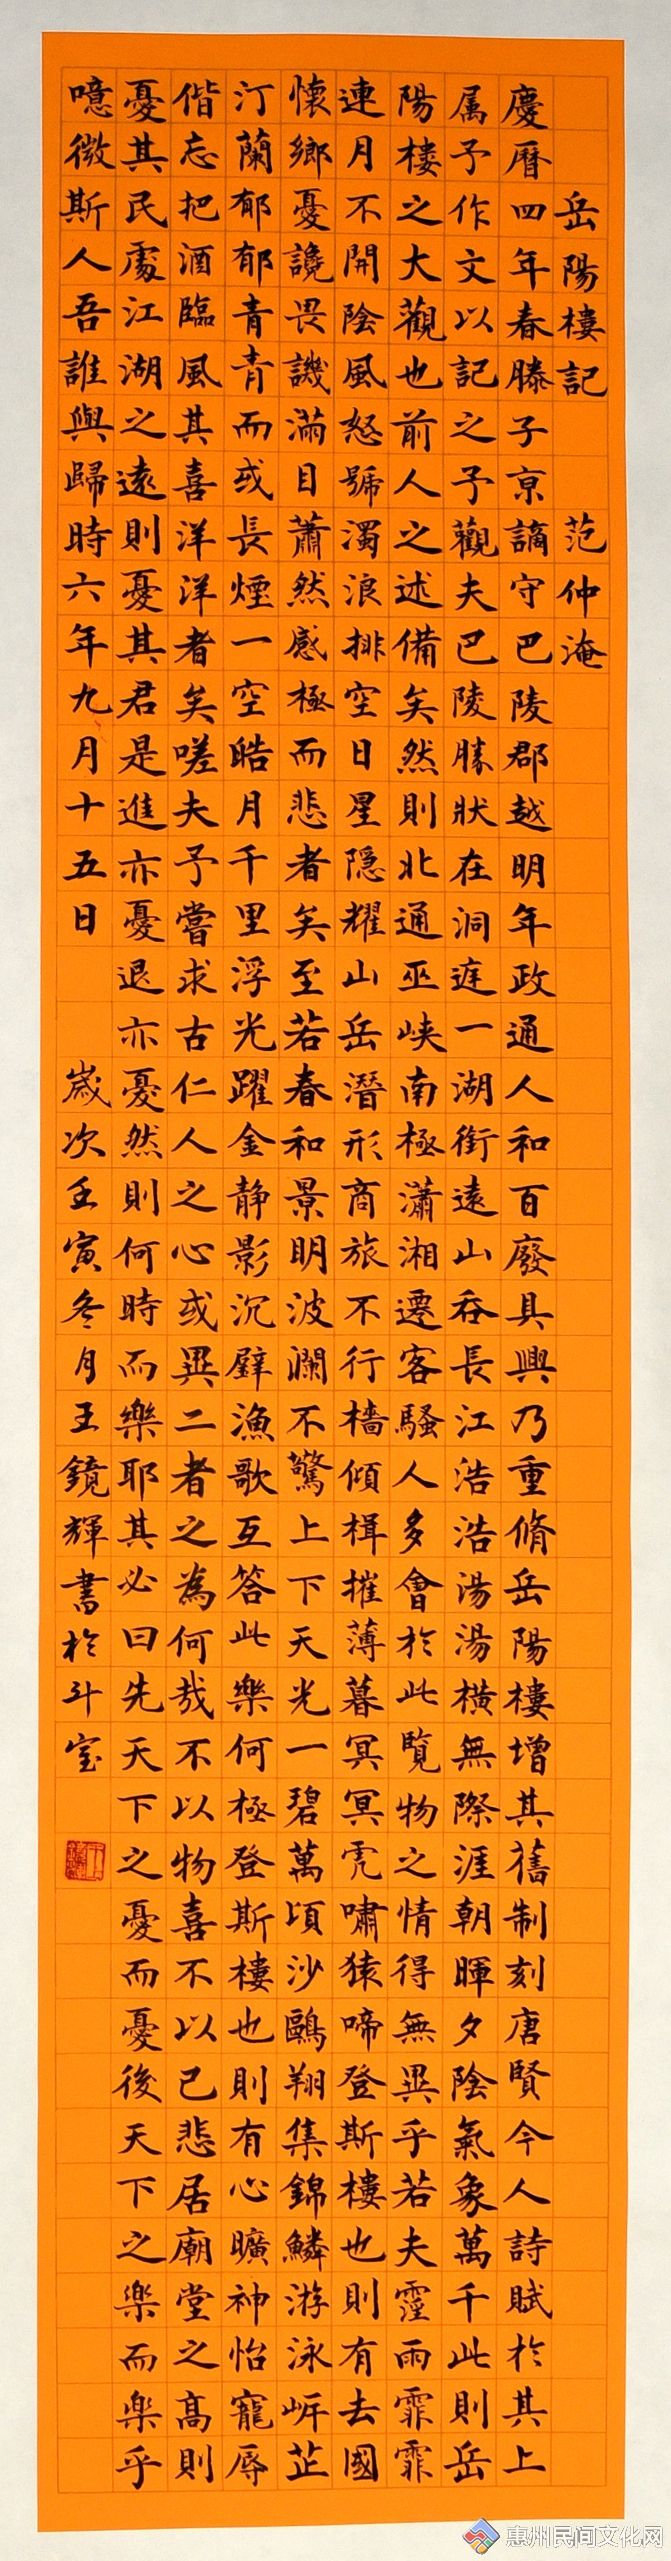 岳陽樓記 范仲淹
慶曆四年春滕子京謫守巴陵郡越明年政通人和百廢具興乃重脩岳陽樓增其舊制刻唐賢今人詩賦於其上
属予作文以記之予觀夫巴陵勝狀在洞庭一湖銜遠山吞長江浩浩湯湯橫無際涯朝暉夕陰氣象萬千此則岳
陽樓之大觀也前人之述備矣然則北通巫峡南極瀟湘遷客騷人多會於此覽物之情得無異乎若夫霪雨霏霏
連月不開陰風怒號濁浪排空日星隱耀山岳潛形商旅不行檣傾楫摧薄暮冥冥虎嘯猿啼登斯樓也則有去國
懷鄉憂讒畏譏滿目蕭然感極而悲者矣至若春和景明波瀾不驚上下天光一碧萬頃沙鷗翔集錦鱗游泳岍芷
汀蘭郁郁青青而或長煙一空皓月千里浮光躍金静影沉璧漁歌互答此樂何極登斯樓也則有心曠神怡寵辱
偕忘把酒臨風其喜洋洋者矣嗟夫予嘗求古仁人之心或異二者之為何哉不以物喜不以己悲居廟堂之高則
憂其民處江湖之遠則憂其君是進亦憂退亦憂然則何時而樂耶其必曰先天下之憂而憂後天下之樂而樂乎
噫微斯人吾誰與歸時六年九月十五日 歲次壬寅冬月王鏡輝書於斗室
惠州民间文化网